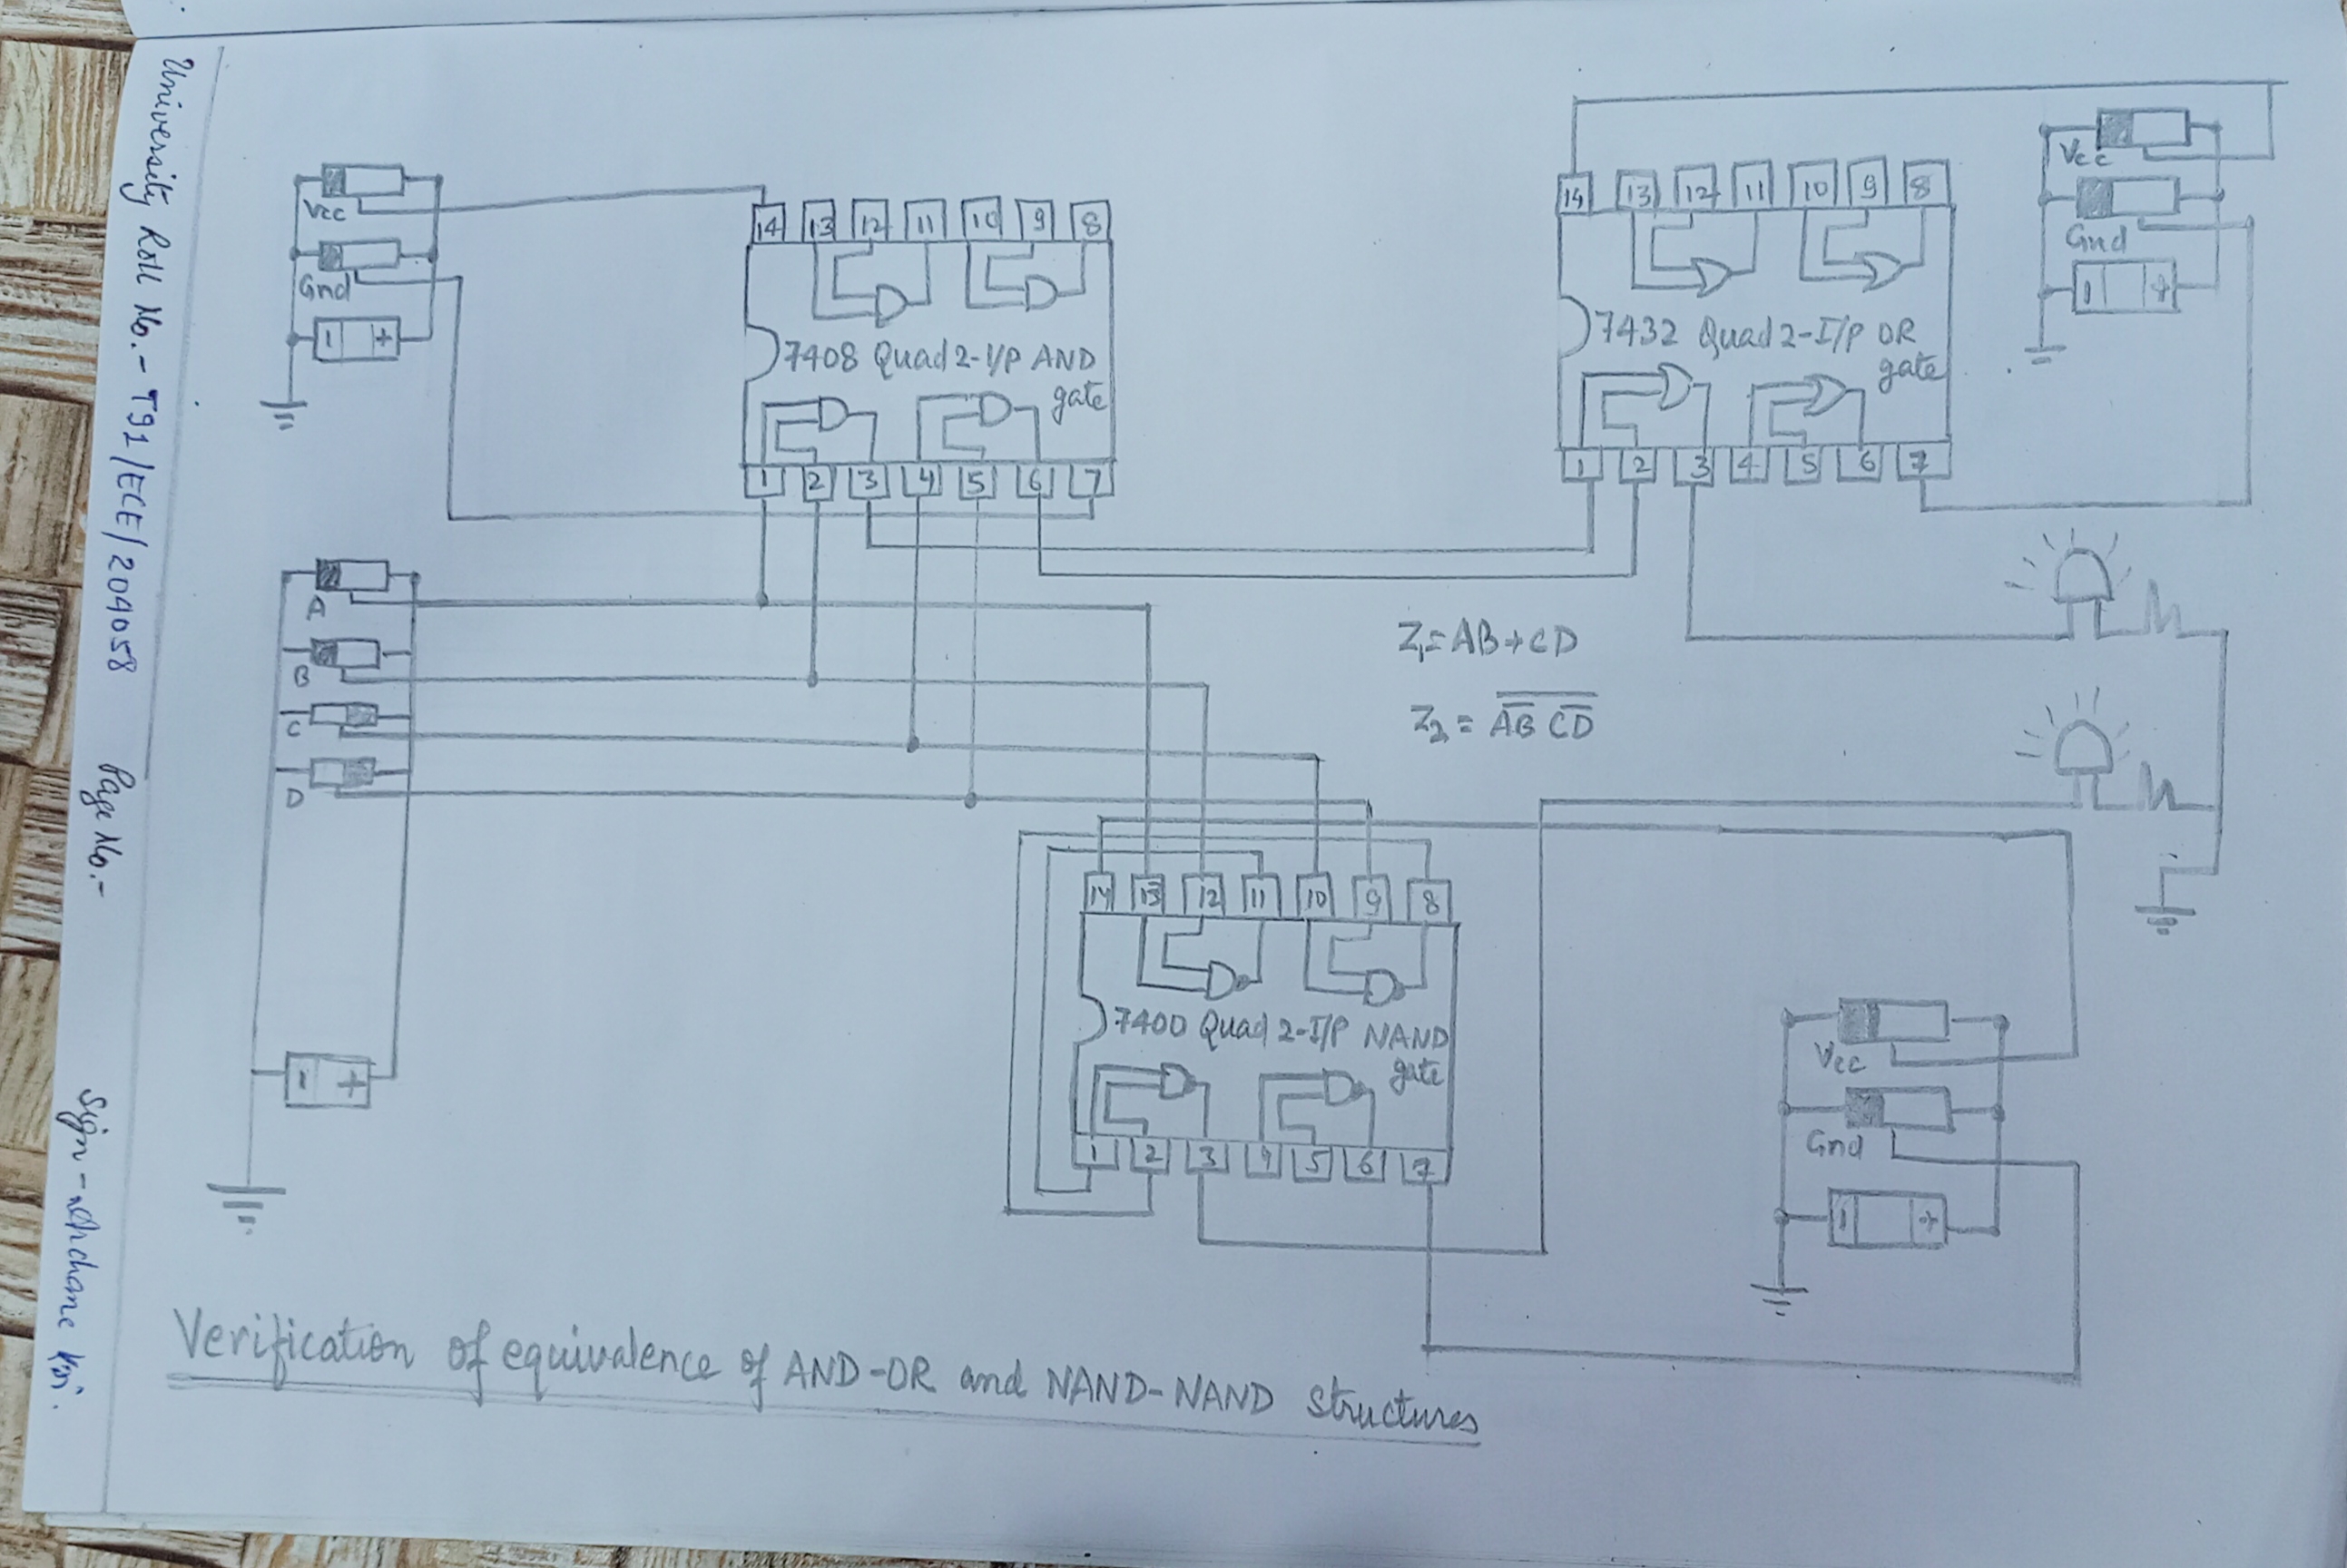 University Roll No.- T91/ECE/204058 Page No.- Sign -
Vcc
Gnd
- +
14 13 12 11 10 9 8
7408 Quad 2-I/P AND
gate
1 2 3 4 5 6 7
14 13 12 11 10 9 8
7432 Quad 2-I/P OR
gate
1 2 3 4 5 6 7
Vcc
Gnd
- +
A
B
C
D
- +
Z₁ = AB+CD
Z₂ = \overline{\overline{AB} \overline{CD}}
14 13 12 11 10 9 8
7400 Quad 2-I/P NAND
gate
1 2 3 4 5 6 7
Vcc
Gnd
- +
Verification of equivalence of AND-OR and NAND-NAND structures